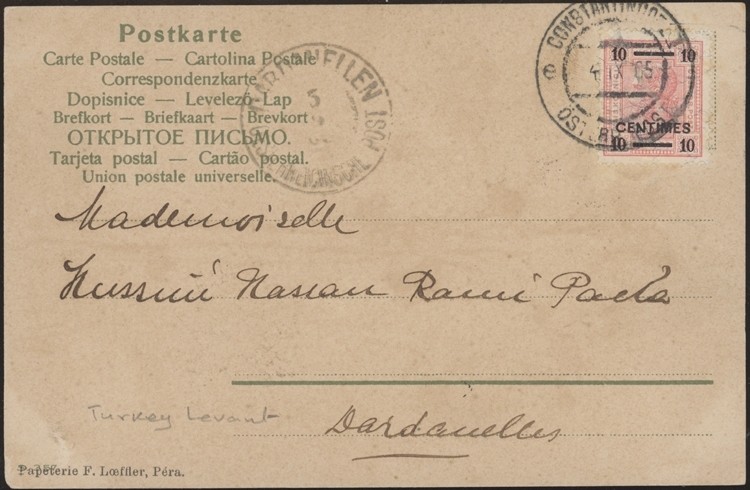 Postkarte
Carte Postale — Cartolina Postale
Correspondenzkarte
Dopisnice — Levelező-Lap
Brefkort — Briefkaart — Brevkort
ОТКРЫТОЕ ПИСЬМО.
Tarjeta postal — Cartão postal.
Union postale universelle.
DARDANELLEN
5
ÖSTERREICHISCHE POST
CONSTANTINOPEL I
4 IX 05
ÖSTERR. POST
10 10
CENTIMES
10 10
Mademoiselle
Hussnié Hassan Rami Pacha
Dardanelles
Turkey Levant
Papeterie F. Lœffler, Péra.